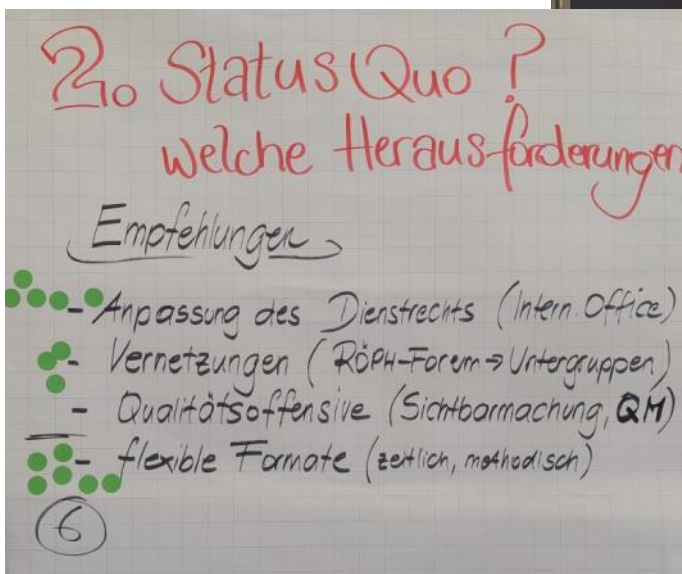 2. Status Quo ?
welche Herausforderungen
Empfehlungen
- Anpassung des Dienstrechts (Intern. Office)
- Vernetzungen (RÖPH-Forum → Untergruppen)
- Qualitätsoffensive (Sichtbarmachung, QM)
- flexible Formate (zeitlich, methodisch)
6